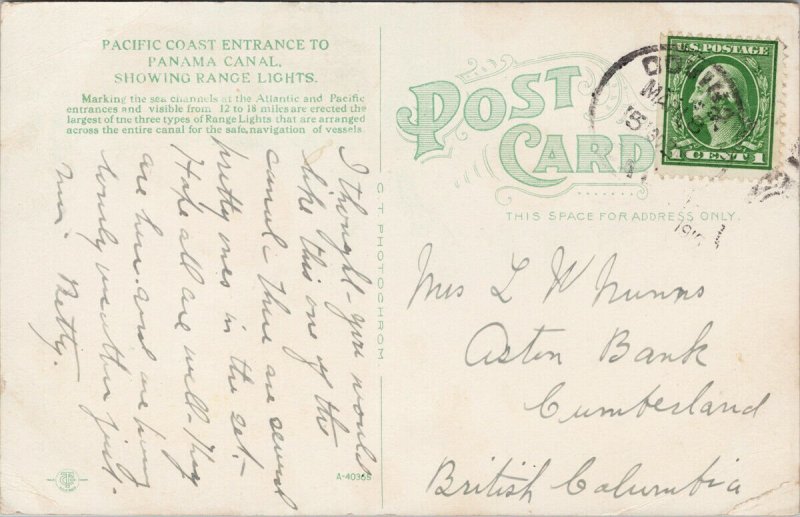 PACIFIC COAST ENTRANCE TO
PANAMA CANAL,
SHOWING RANGE LIGHTS.
Marking the sea channels at the Atlantic and Pacific
entrances and visible from 12 to 18 miles are erected the
largest of the three types of Range Lights that are arranged
across the entire canal for the safe navigation of vessels
I thought you would
like this one of the
canal. There are several
pretty ones in the set.
Hope all are well. They
are here and are having
lovely weather just
now. Betty.
CT PHOTOCHROM
A-40365
POST
CARD
THIS SPACE FOR ADDRESS ONLY.
U.S. POSTAGE
1 CENT 1
Mrs L W Nunns
Aston Bank
Cumberland
British Columbia